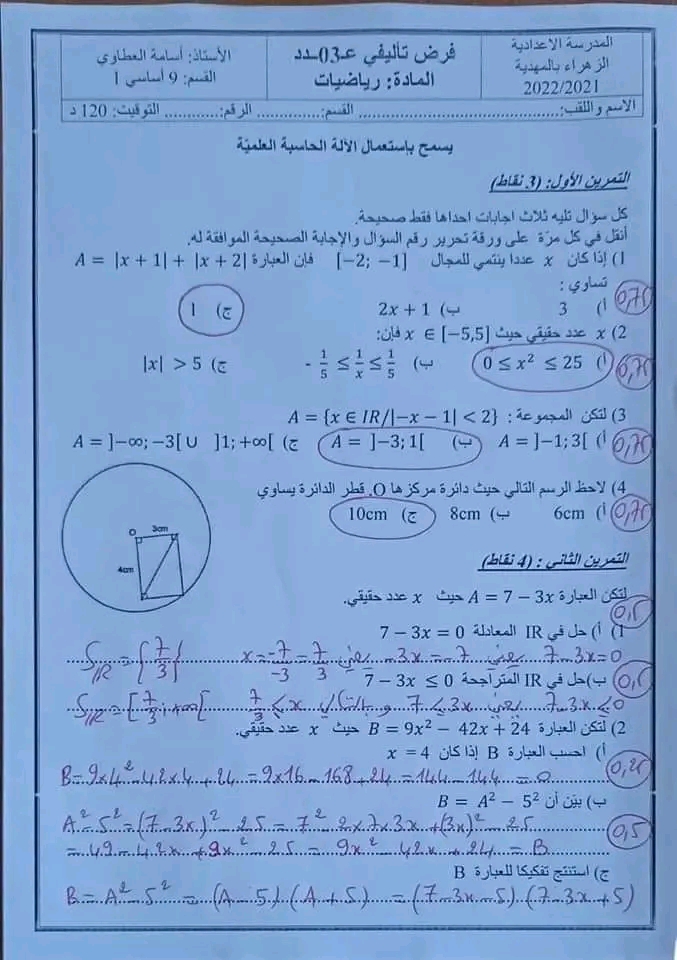 المدرسة الاعدادية
الزهراء بالمهدية
2022/2021
فرض تأليفي عـ03ـدد
المادة: رياضيات
الأستاذ: أسامة العطاوي
القسم: 9 أساسي 1
الاسم واللقب:............................................ القسم:.............. الرقم:............ التوقيت: 120 د
يسمح بإستعمال الألة الحاسبة العلميّة
التمرين الأول: (3 نقاط)
كل سؤال تليه ثلاث اجابات احداها فقط صحيحة.
أنقل في كل مرّة على ورقة تحرير رقم السؤال والإجابة الصحيحة الموافقة له.
1) إذا كان x عددا ينتمي للمجال [-2; -1] فإن العبارة A = |x + 1| + |x + 2|
تساوي :
0,75
أ) 3 ب) 2x + 1 ج) 1
2) x عدد حقيقي حيث x ∈ [-5,5] فإن:
0,75
أ) 0 ≤ x² ≤ 25 ب) - 1/5 ≤ 1/x ≤ 1/5 ج) |x| > 5
3) لتكن المجموعة : A = {x ∈ IR/|-x - 1| < 2}
0,75
أ) A = ]-1; 3[ ب) A = ]-3; 1[ ج) A = ]-∞; -3[ ∪ ]1; +∞[
4) لاحظ الرسم التالي حيث دائرة مركزها O. قطر الدائرة يساوي
0,75
أ) 6cm ب) 8cm ج) 10cm
O
3cm
4cm
التمرين الثاني : (4 نقاط)
لتكن العبارة A = 7 - 3x حيث x عدد حقيقي.
0,5
1) أ) حل في IR المعادلة 7 - 3x = 0
7-3x=0 يعني -3x=-7 يعني x = -7/-3 = 7/3 S_IR = {7/3}
0,5
ب) حل في IR المتراجحة 7 - 3x ≤ 0
7-3x≤0 يعني 7≤3x و بالتالي 7/3 ≤ x S_IR = [7/3; +∞[
2) لتكن العبارة B = 9x² - 42x + 24 حيث x عدد حقيقي.
أ) احسب العبارة B إذا كان x = 4
0,25
B = 9×4² - 42×4 + 24 = 9×16 - 168 + 24 = 144 - 144 = 0
ب) بيّن أن B = A² - 5²
0,5
A² - 5² = (7-3x)² - 25 = 7² - 2×7×3x + (3x)² - 25
= 49 - 42x + 9x² - 25 = 9x² - 42x + 24 = B
ج) استنتج تفكيكا للعبارة B
B = A² - 5² = (A - 5)(A + 5) = (7-3x-5)(7-3x+5)